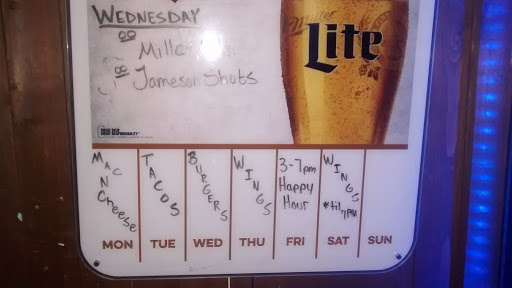 WEDNESDAY
Miller
Jameson Shots
Miller
Lite
MAC N Cheese
TACOS
BURGERS
WINGS
3-7pm
Happy
Hour
WINGS
*til 7PM
MON TUE WED THU FRI SAT SUN